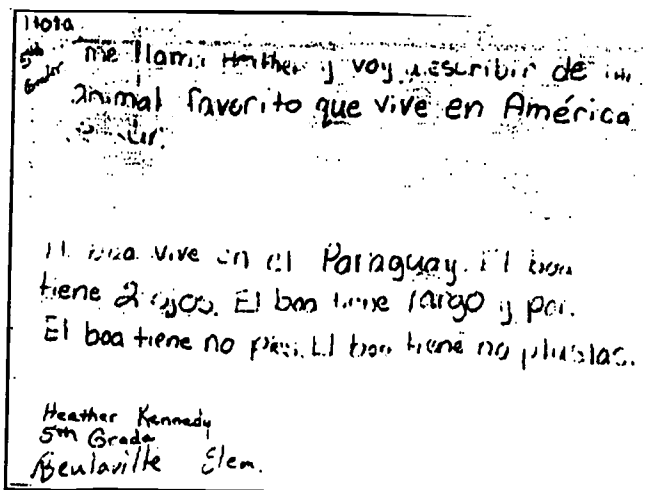 Hola
5th Grade
me llamo Heather y voy a escribir de mi
animal favorito que vive en América
sur.
El boa vive en el Paraguay. El boa
tiene 2 ojos. El boa tiene largo y
El boa tiene no El boa tiene no
Heather Kennedy
5th Grade
Beulaville Elem.